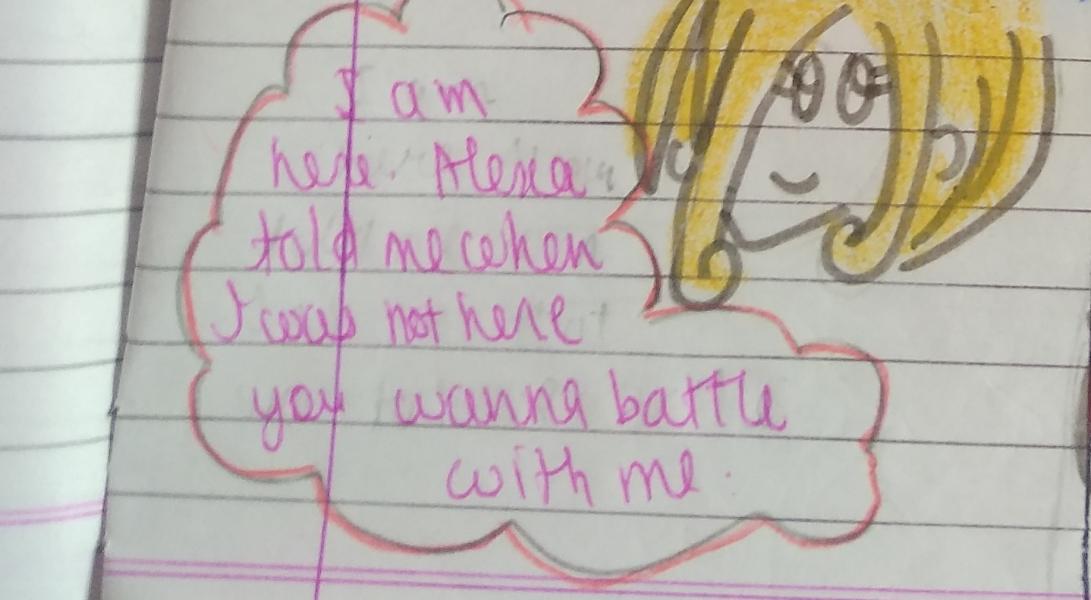 I am
here. Alexa
told me when
I was not here
you wanna battle
with me.